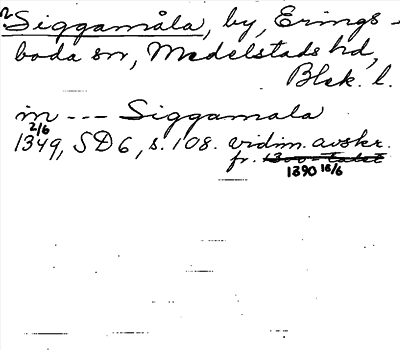 Siggamåla, by, Erings-
boda sn, Medelstads hd,
Blek. l.
in --- Siggamala
2/6
1349, SD 6, s. 108. vidim. avskr.
fr. 1300-talet
1390 16/6